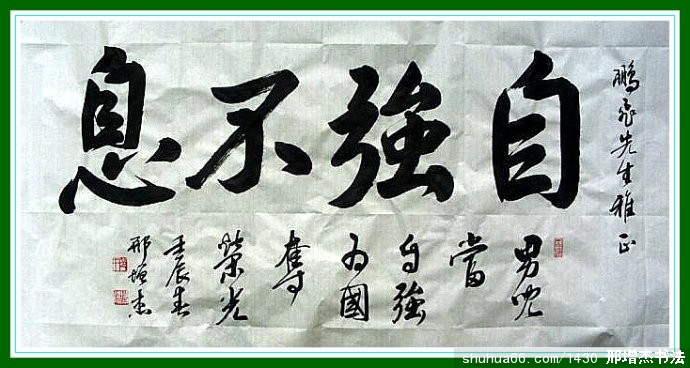 鵬飛先生雅正
自強不息
男兒
當
自強
為國
奪
榮光
壬辰春
邢增杰
shuhua66.com/1430 邢增杰书法